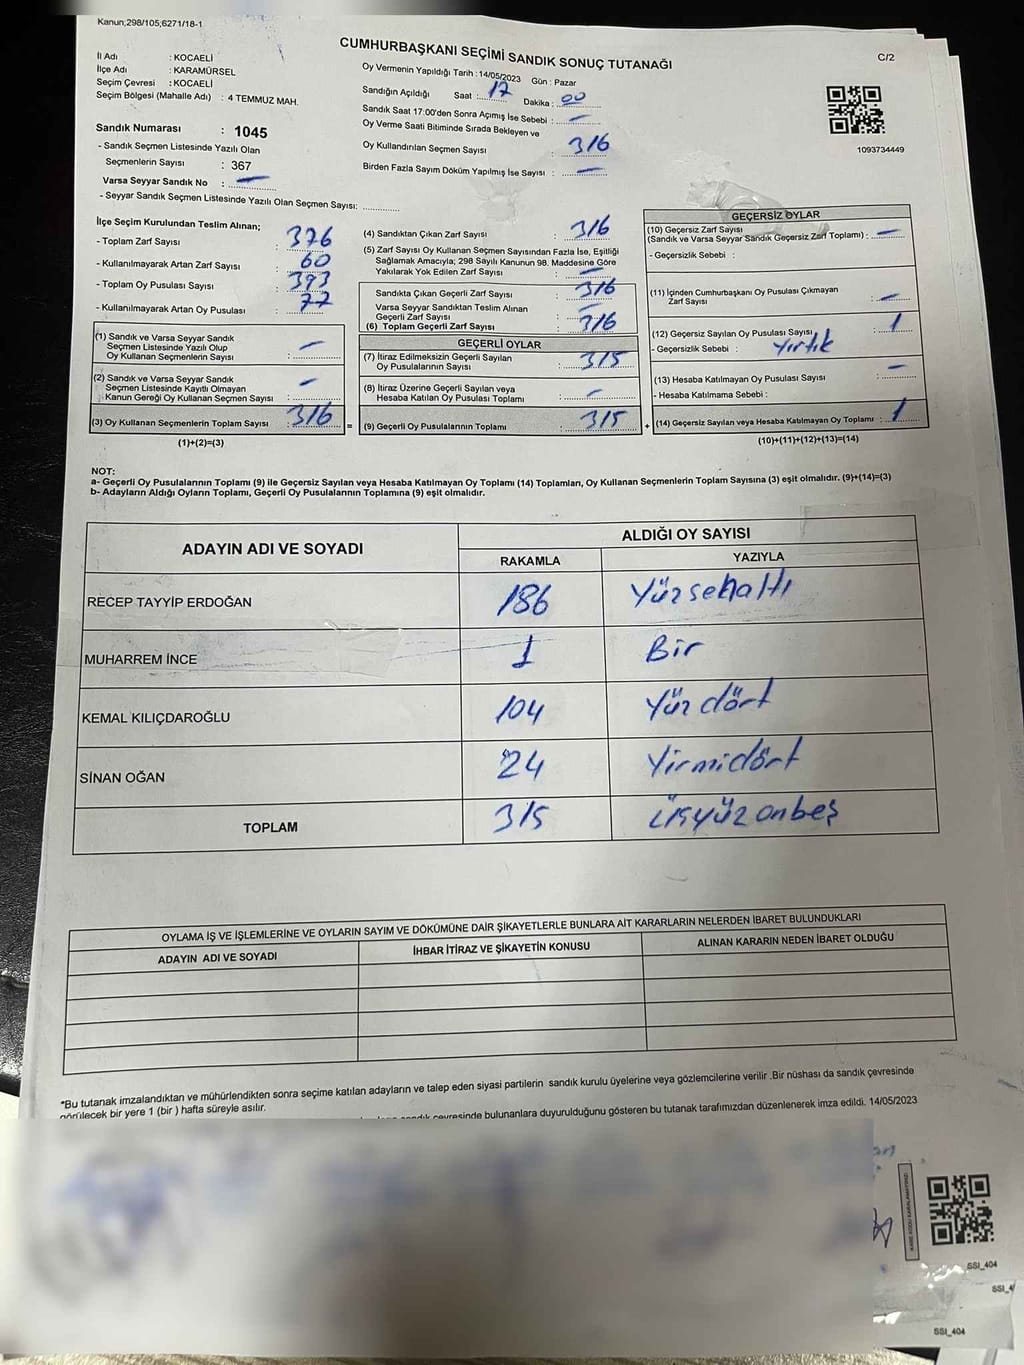 Kanun;298/105;6271/18-1
CUMHURBAŞKANI SEÇİMİ SANDIK SONUÇ TUTANAĞI
C/2
İl Adı : KOCAELİ
İlçe Adı : KARAMÜRSEL
Seçim Çevresi : KOCAELİ
Seçim Bölgesi (Mahalle Adı) : 4 TEMMUZ MAH.
Sandık Numarası : 1045
- Sandık Seçmen Listesinde Yazılı Olan
Seçmenlerin Sayısı : 367
Varsa Seyyar Sandık No : —
- Seyyar Sandık Seçmen Listesinde Yazılı Olan Seçmen Sayısı: ..............
Oy Vermenin Yapıldığı Tarih : 14/05/2023 Gün : Pazar
Sandığın Açıldığı Saat : 17 Dakika : 00
Sandık Saat 17:00'den Sonra Açımış İse Sebebi : —
Oy Verme Saati Bitiminde Sırada Bekleyen ve
Oy Kullandırılan Seçmen Sayısı : 316
Birden Fazla Sayım Döküm Yapılmış İse Sayısı : —
1093734449
İlçe Seçim Kurulundan Teslim Alınan;
- Toplam Zarf Sayısı : 376
- Kullanılmayarak Artan Zarf Sayısı : 60
- Toplam Oy Pusulası Sayısı : 393
- Kullanılmayarak Artan Oy Pusulası : 77
(1) Sandık ve Varsa Seyyar Sandık
Seçmen Listesinde Yazılı Olup
Oy Kullanan Seçmenlerin Sayısı : —
(2) Sandık ve Varsa Seyyar Sandık
Seçmen Listesinde Kayıtlı Olmayan
Kanun Gereği Oy Kullanan Seçmen Sayısı : —
(3) Oy Kullanan Seçmenlerin Toplam Sayısı : 316
(1)+(2)=(3)
=
(4) Sandıktan Çıkan Zarf Sayısı : 316
(5) Zarf Sayısı Oy Kullanan Seçmen Sayısından Fazla İse, Eşitliği
Sağlamak Amacıyla; 298 Sayılı Kanunun 98. Maddesine Göre
Yakılarak Yok Edilen Zarf Sayısı : —
Sandıkta Çıkan Geçerli Zarf Sayısı : 316
Varsa Seyyar Sandıktan Teslim Alınan
Geçerli Zarf Sayısı : —
(6) Toplam Geçerli Zarf Sayısı : 316
GEÇERLİ OYLAR
(7) İtiraz Edilmeksizin Geçerli Sayılan
Oy Pusulalarının Sayısı : 315
(8) İtiraz Üzerine Geçerli Sayılan veya
Hesaba Katılan Oy Pusulası Toplamı : —
(9) Geçerli Oy Pusulalarının Toplamı : 315
+
GEÇERSİZ OYLAR
(10) Geçersiz Zarf Sayısı
(Sandık ve Varsa Seyyar Sandık Geçersiz Zarf Toplamı) : —
- Geçersizlik Sebebi :
(11) İçinden Cumhurbaşkanı Oy Pusulası Çıkmayan
Zarf Sayısı : —
(12) Geçersiz Sayılan Oy Pusulası Sayısı : 1
- Geçersizlik Sebebi : Yırtık
(13) Hesaba Katılmayan Oy Pusulası Sayısı : —
- Hesaba Katılmama Sebebi :
(14) Geçersiz Sayılan veya Hesaba Katılmayan Oy Toplamı : 1
(10)+(11)+(12)+(13)=(14)
NOT:
a- Geçerli Oy Pusulalarının Toplamı (9) ile Geçersiz Sayılan veya Hesaba Katılmayan Oy Toplamı (14) Toplamları, Oy Kullanan Seçmenlerin Toplam Sayısına (3) eşit olmalıdır. (9)+(14)=(3)
b- Adayların Aldığı Oyların Toplamı, Geçerli Oy Pusulalarının Toplamına (9) eşit olmalıdır.
ADAYIN ADI VE SOYADI
ALDIĞI OY SAYISI
RAKAMLA YAZIYLA
RECEP TAYYİP ERDOĞAN 186 Yüzseksenaltı
MUHARREM İNCE 1 Bir
KEMAL KILIÇDAROĞLU 104 Yüz dört
SİNAN OĞAN 24 Yirmidört
TOPLAM 315 üçyüz onbeş
OYLAMA İŞ VE İŞLEMLERİNE VE OYLARIN SAYIM VE DÖKÜMÜNE DAİR ŞİKAYETLERLE BUNLARA AİT KARARLARIN NELERDEN İBARET BULUNDUKLARI
ADAYIN ADI VE SOYADI İHBAR İTİRAZ VE ŞİKAYETİN KONUSU ALINAN KARARIN NEDEN İBARET OLDUĞU
*Bu tutanak imzalandıktan ve mühürlendikten sonra seçime katılan adayların ve talep eden siyasi partilerin sandık kurulu üyelerine veya gözlemcilerine verilir .Bir nüshası da sandık çevresinde
görülecek bir yere 1 (bir ) hafta süreyle asılır.
sandık çevresinde bulunanlara duyurulduğunu gösteren bu tutanak tarafımızdan düzenlenerek imza edildi. 14/05/2023
KARE KODU KARALAMAYINIZ
SSI_404
SSI_4
SSI_404